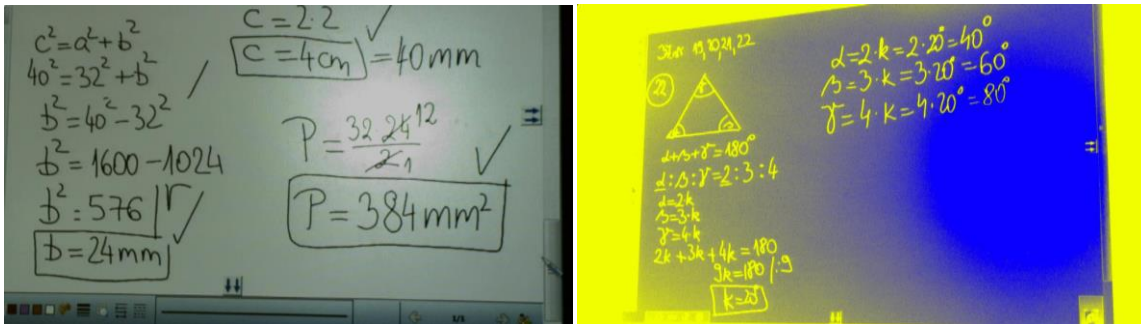 c² = a² + b²
40² = 32² + b²
b² = 40² - 32²
b² = 1600 - 1024
b² = 576 |√
b = 24mm
c = 2·2
c = 4cm = 40mm
P = 32 · 24 12 / 2 1
P = 384mm²
1/1
19,20,21,22
22
α+β+γ=180°
α:β:γ=2:3:4
α=2·k
β=3·k
γ=4·k
2k+3k+4k=180
9k=180 /:9
k=20°
α=2·k=2·20°=40°
β=3·k=3·20°=60°
γ=4·k=4·20°=80°